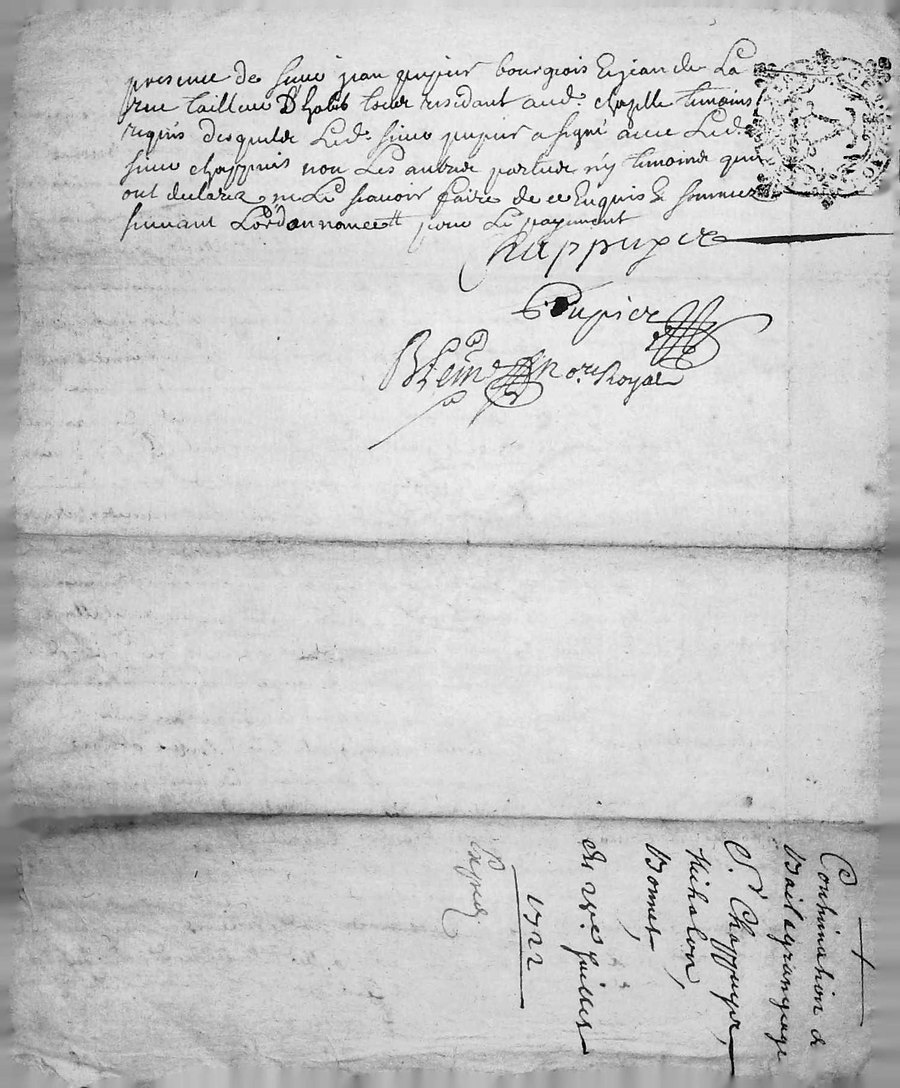 presence de sieur jean pupier bourgeois Et jean de La
rue tailleur D'habits tous residant aud. chapelle temoins
requis desquels Led. sieur pupier a signé avec Led.
sieur chappuis non Les autres parties ny temoins qui
ont declaré ne Le scavoir faire de ce Enquis Et sommez
suivant Lordonnance pour Le payement
Chappuyer
Pupier
No.re Royal
Continuation de
Bail a grangeage
S.r Chappuyer,
Michalon,
Bonnet
du juillet
1722